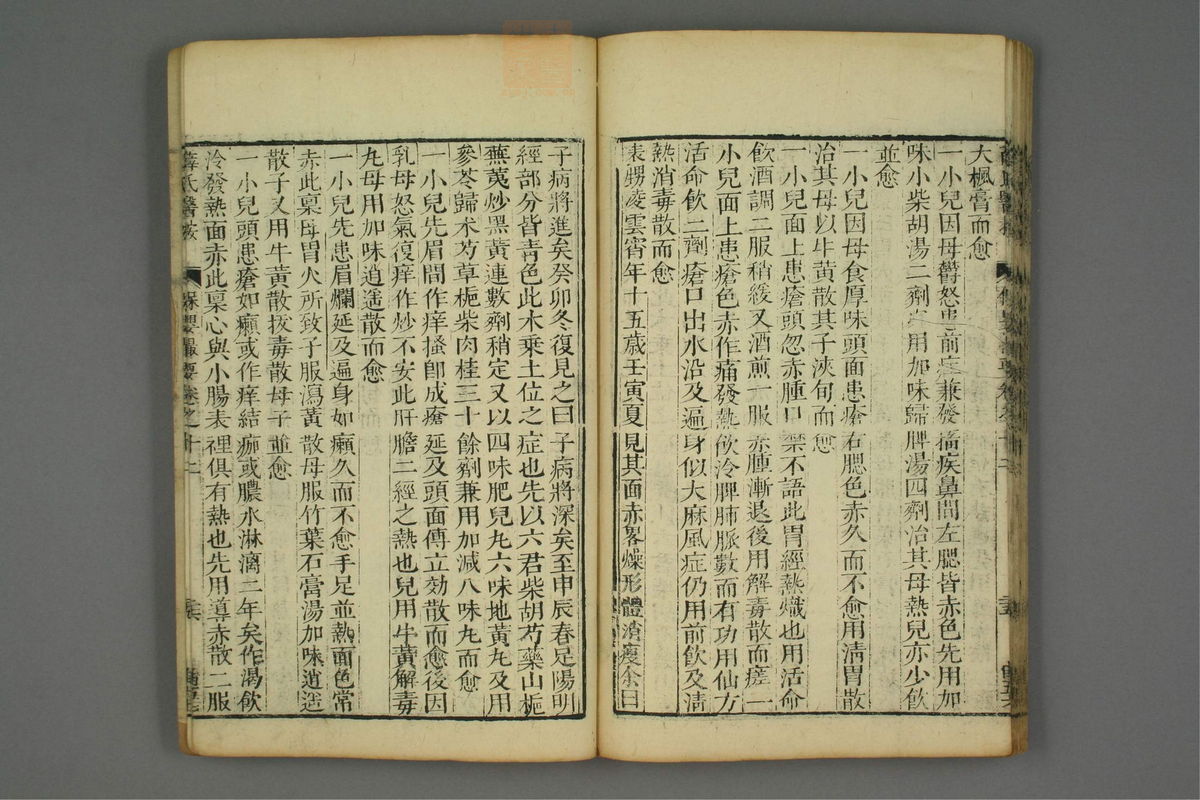 大楓膏而愈
一小兒因母鬱怒患前症兼發搐疾鼻間左腮皆赤色先用加
味小柴胡湯二劑用加味歸脾湯四劑治其母熱兒亦少飲
並愈
一小兒因母食厚味頭面患瘡右腮色赤久而不愈用清胃散
治其母以牛黃散其子浹旬而愈
一小兒面上患瘡頭忽赤腫口禁不語此胃經熱熾也用活命
飲酒調二服稍緩又酒煎一服赤腫漸退後用解毒散而瘥一
小兒面上患瘡色赤作痛發熱飲冷脾肺脈數而有功用仙方
活命飲二劑瘡口出水沿及遍身似大麻風症仍用前飲及清
熱消毒散而愈
表甥凌雲霄年十五歲壬寅夏見其面赤畧燥形體消瘦余曰
子病將進矣癸卯冬復見之曰子病將深矣至申辰春足陽明
經部分皆青色此木乗土位之症也先以六君柴胡芍藥山梔
蕪荑炒黑黃連數劑稍定又以四味肥兒丸六味地黃丸及用
參苓歸术芍草梔柴肉桂三十餘劑兼用加減八味丸而愈
一小兒先眉間作痒搔即成瘡延及頭面傅立効散而愈後因
乳母怒氣復痒作炒不安此肝膽二經之熱也兒用牛黃解毒
丸母用加味逍遥散而愈
一小兒先患眉爛延及遍身如癩久而不愈手足並熱面色常
赤此稟母胃火所致子服瀉黃散母服竹葉石膏湯加味逍遥
散子又用牛黃散拔毒散母子並愈
一小兒頭患瘡如癩或作痒結痂或膿水淋漓二年矣作渴飲
冷發熱面赤此稟心與小腸表裡俱有熱也先用導赤散二服
薛氏醫按 保嬰撮要卷之十二 三六